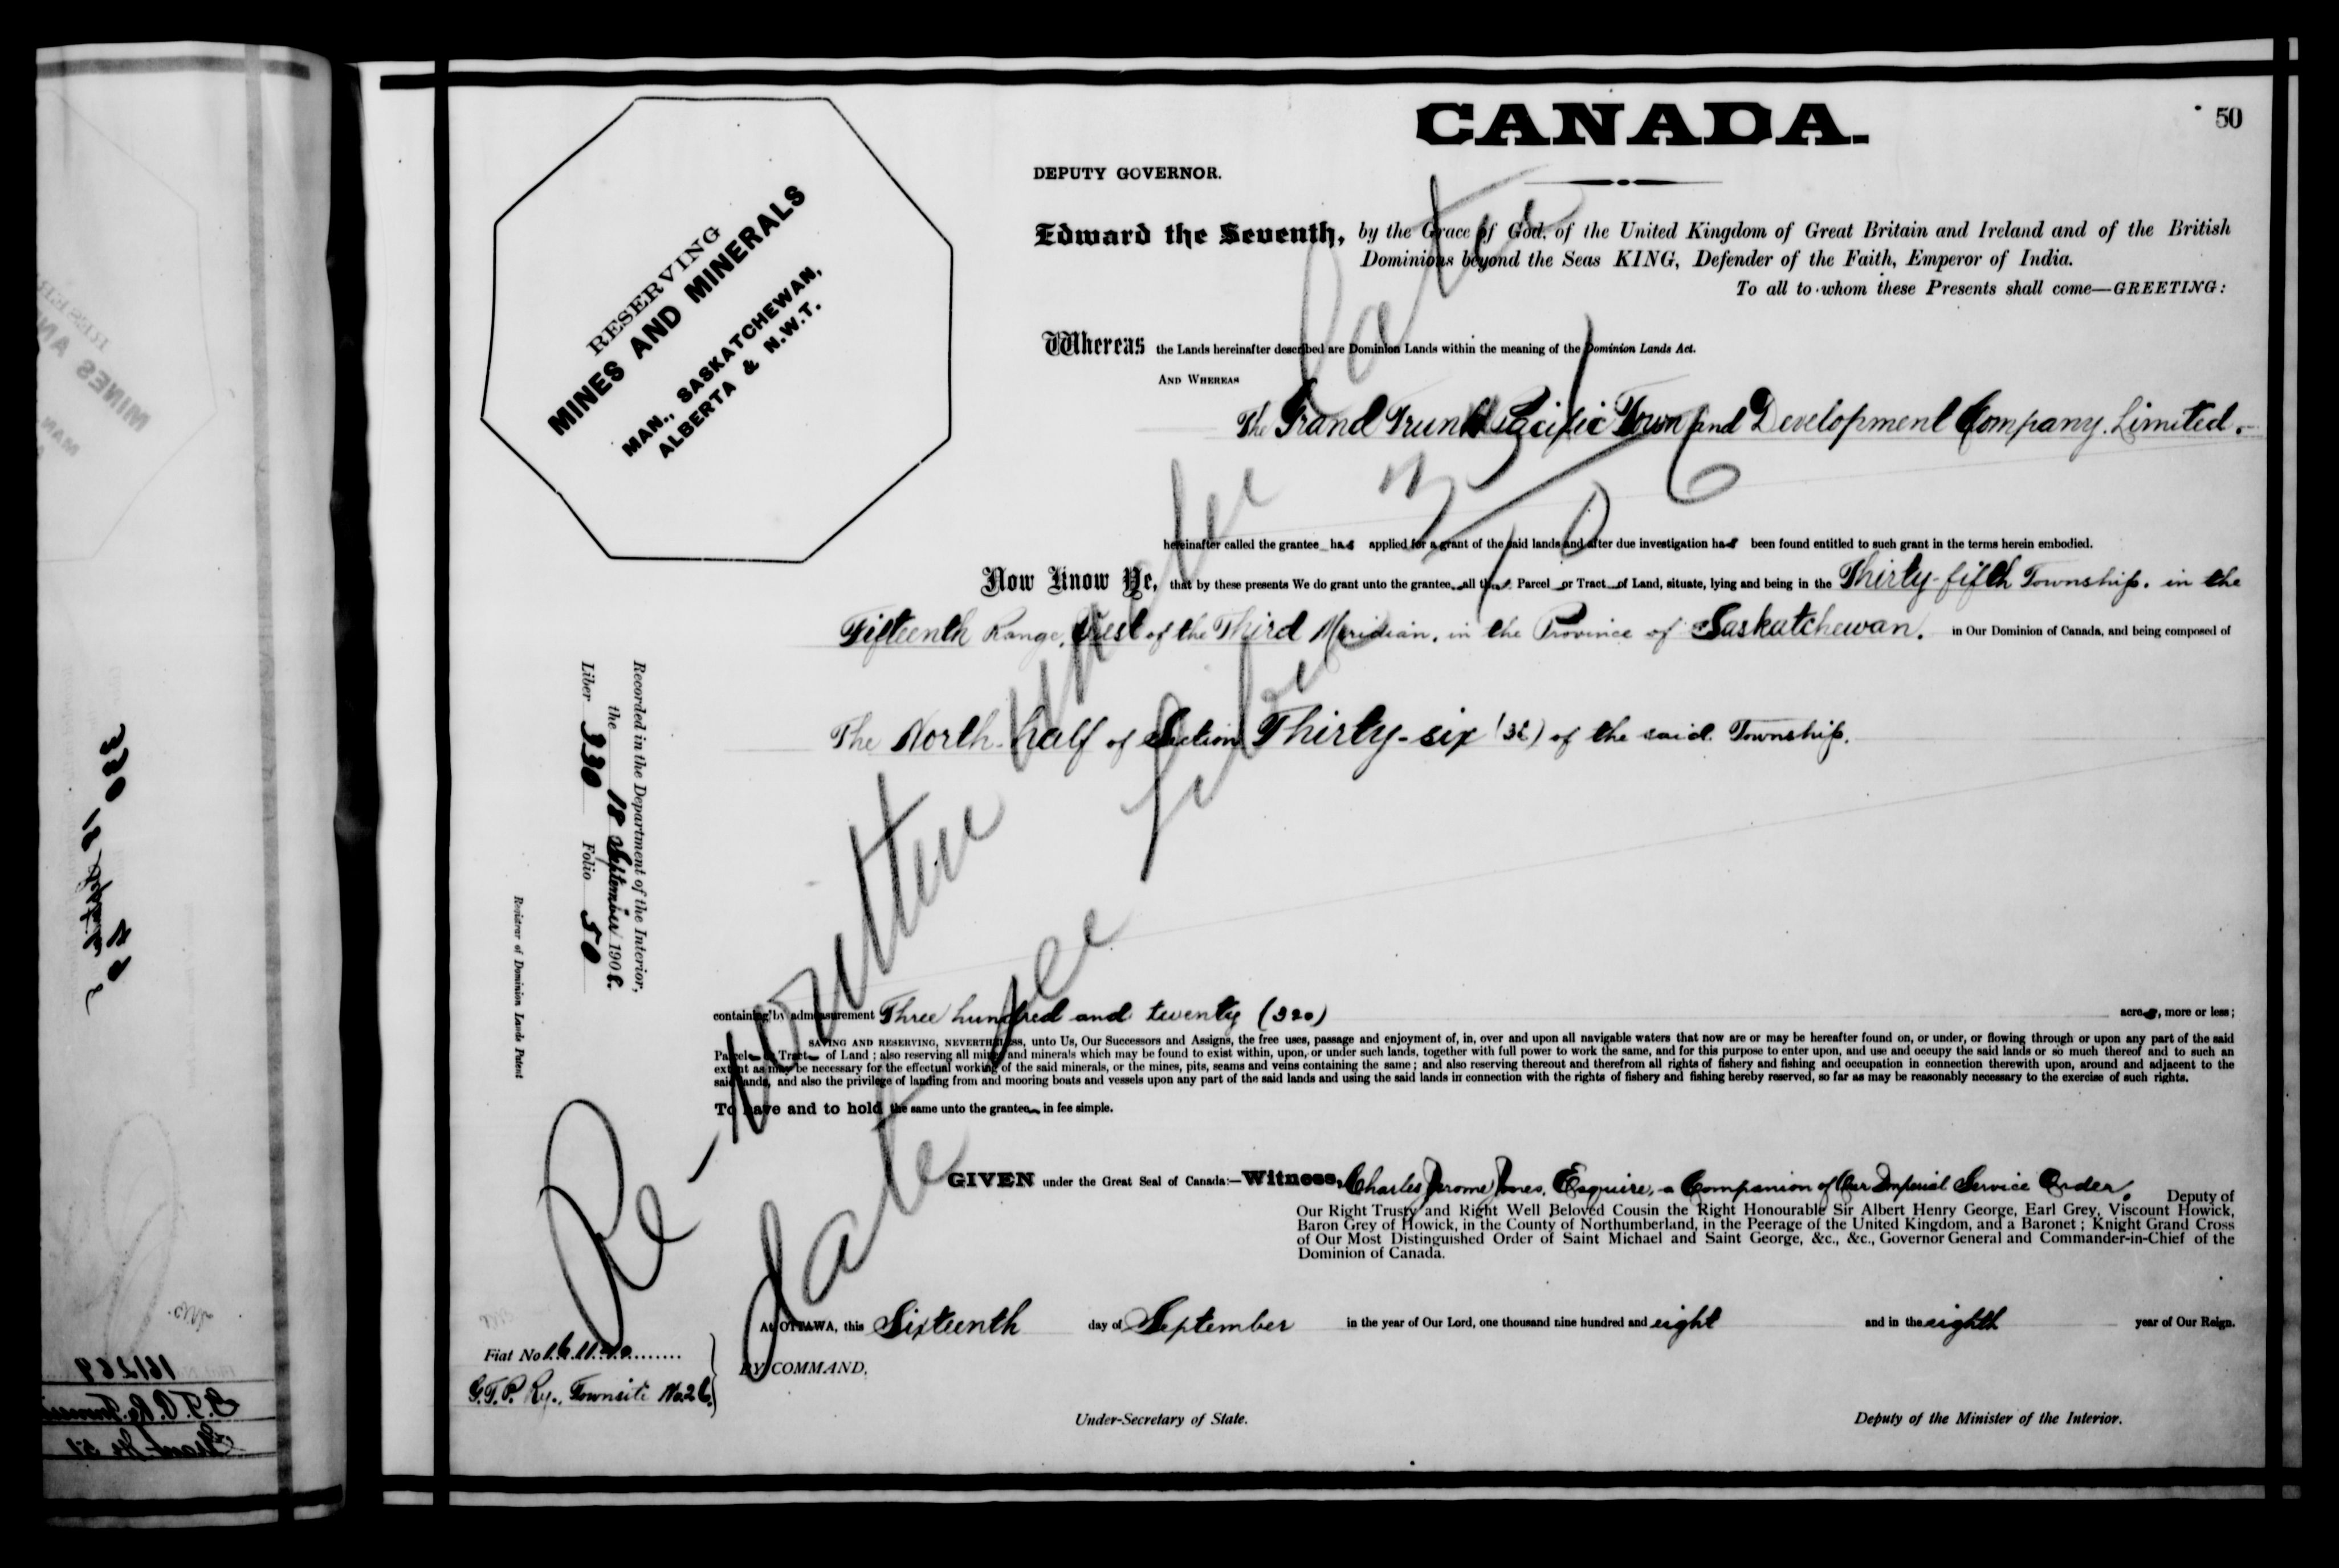 50
CANADA.
DEPUTY GOVERNOR.
Edward the Seventh, by the Grace of God, of the United Kingdom of Great Britain and Ireland and of the British
Dominions beyond the Seas KING, Defender of the Faith, Emperor of India.
To all to whom these Presents shall come—GREETING:
RESERVING
MINES AND MINERALS
MAN., SASKATCHEWAN,
ALBERTA & N.W.T.
Whereas the Lands hereinafter described are Dominion Lands within the meaning of the Dominion Lands Act.
AND WHEREAS
The Grand Trunk Pacific Town and Development Company. Limited.
hereinafter called the grantee has applied for a grant of the said lands and after due investigation has been found entitled to such grant in the terms herein embodied.
Now Know Ye, that by these presents We do grant unto the grantee all that Parcel or Tract of Land, situate, lying and being in the Thirty-fifth Township. in the
Fifteenth Range, West of the Third Meridian, in the Province of Saskatchewan. in Our Dominion of Canada, and being composed of
The North-half of Section Thirty-six (36) of the said Township.
Recorded in the Department of the Interior,
the 18 September 1908.
Liber 330 Folio 50
Registrar of Dominion Lands Patent
containing by admeasurement Three hundred and twenty (320) acres, more or less;
SAVING AND RESERVING, NEVERTHELESS, unto Us, Our Successors and Assigns, the free uses, passage and enjoyment of, in, over and upon all navigable waters that now are or may be hereafter found on, or under, or flowing through or upon any part of the said
Parcel or Tract of Land; also reserving all mines and minerals which may be found to exist within, upon, or under such lands, together with full power to work the same, and for this purpose to enter upon, and use and occupy the said lands or so much thereof and to such an
extent as may be necessary for the effectual working of the said minerals, or the mines, pits, seams and veins containing the same; and also reserving thereout and therefrom all rights of fishery and fishing and occupation in connection therewith upon, around and adjacent to the
said lands, and also the privilege of landing from and mooring boats and vessels upon any part of the said lands and using the said lands in connection with the rights of fishery and fishing hereby reserved, so far as may be reasonably necessary to the exercise of such rights.
To have and to hold the same unto the grantee in fee simple.
GIVEN under the Great Seal of Canada:—Witness, Charles Jerome Jones, Esquire, a Companion of Our Imperial Service Order. Deputy of
Our Right Trusty and Right Well Beloved Cousin the Right Honourable Sir Albert Henry George, Earl Grey, Viscount Howick,
Baron Grey of Howick, in the County of Northumberland, in the Peerage of the United Kingdom, and a Baronet; Knight Grand Cross
of Our Most Distinguished Order of Saint Michael and Saint George, &c., &c., Governor General and Commander-in-Chief of the
Dominion of Canada.
At OTTAWA, this Sixteenth day of September in the year of Our Lord, one thousand nine hundred and eight and in the eighth year of Our Reign.
Fiat No
G.T.P. Ry., Townsite No. 26.
BY COMMAND,
Under-Secretary of State.
Deputy of the Minister of the Interior.
Re-written under later
date see Liber